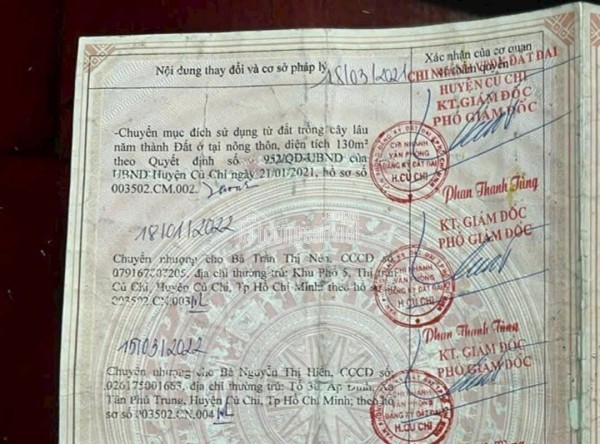 Nội dung thay đổi và cơ sở pháp lý
Xác nhận của cơ quan
có thẩm quyền
18/03/2021
CHI NHÁNH VPĐK ĐẤT ĐAI
HUYỆN CỦ CHI
KT.GIÁM ĐỐC
PHÓ GIÁM ĐỐC
-Chuyển mục đích sử dụng từ đất trồng cây lâu
năm thành Đất ở tại nông thôn, diện tích 130m²
theo Quyết định số 952/QĐ-UBND của
UBND Huyện Củ Chi ngày 21/01/2021, hồ sơ số
003502.CM.002.
CHI NHÁNH
VĂN PHÒNG
ĐĂNG KÝ ĐẤT ĐAI
H.CỦ CHI
Phan Thanh Tùng
18/01/2022
KT. GIÁM ĐỐC
PHÓ GIÁM ĐỐC
Chuyển nhượng cho Bà Trần Thị Nen, CCCD số
địa chỉ thường trú: Khu Phố 5, Thị trấn
Củ Chi, Huyện Củ Chi, Tp Hồ Chí Minh; theo hồ sơ
số 003502.CN.003
CHI NHÁNH
VĂN PHÒNG
ĐĂNG KÝ ĐẤT ĐAI
H.CỦ CHI
Phan Thanh Tùng
15/03/2022
KT. GIÁM ĐỐC
PHÓ GIÁM ĐỐC
Chuyển nhượng cho Bà Nguyễn Thị Hiền, CCCD số
026175001665, địa chỉ thường trú: Tổ Ấp Đình, Xã
Tân Phú Trung, Huyện Củ Chi, Tp Hồ Chí Minh; theo
hồ sơ số 003502.CN.004
CHI NHÁNH
VĂN PHÒNG
ĐĂNG KÝ ĐẤT ĐAI
H.CỦ CHI